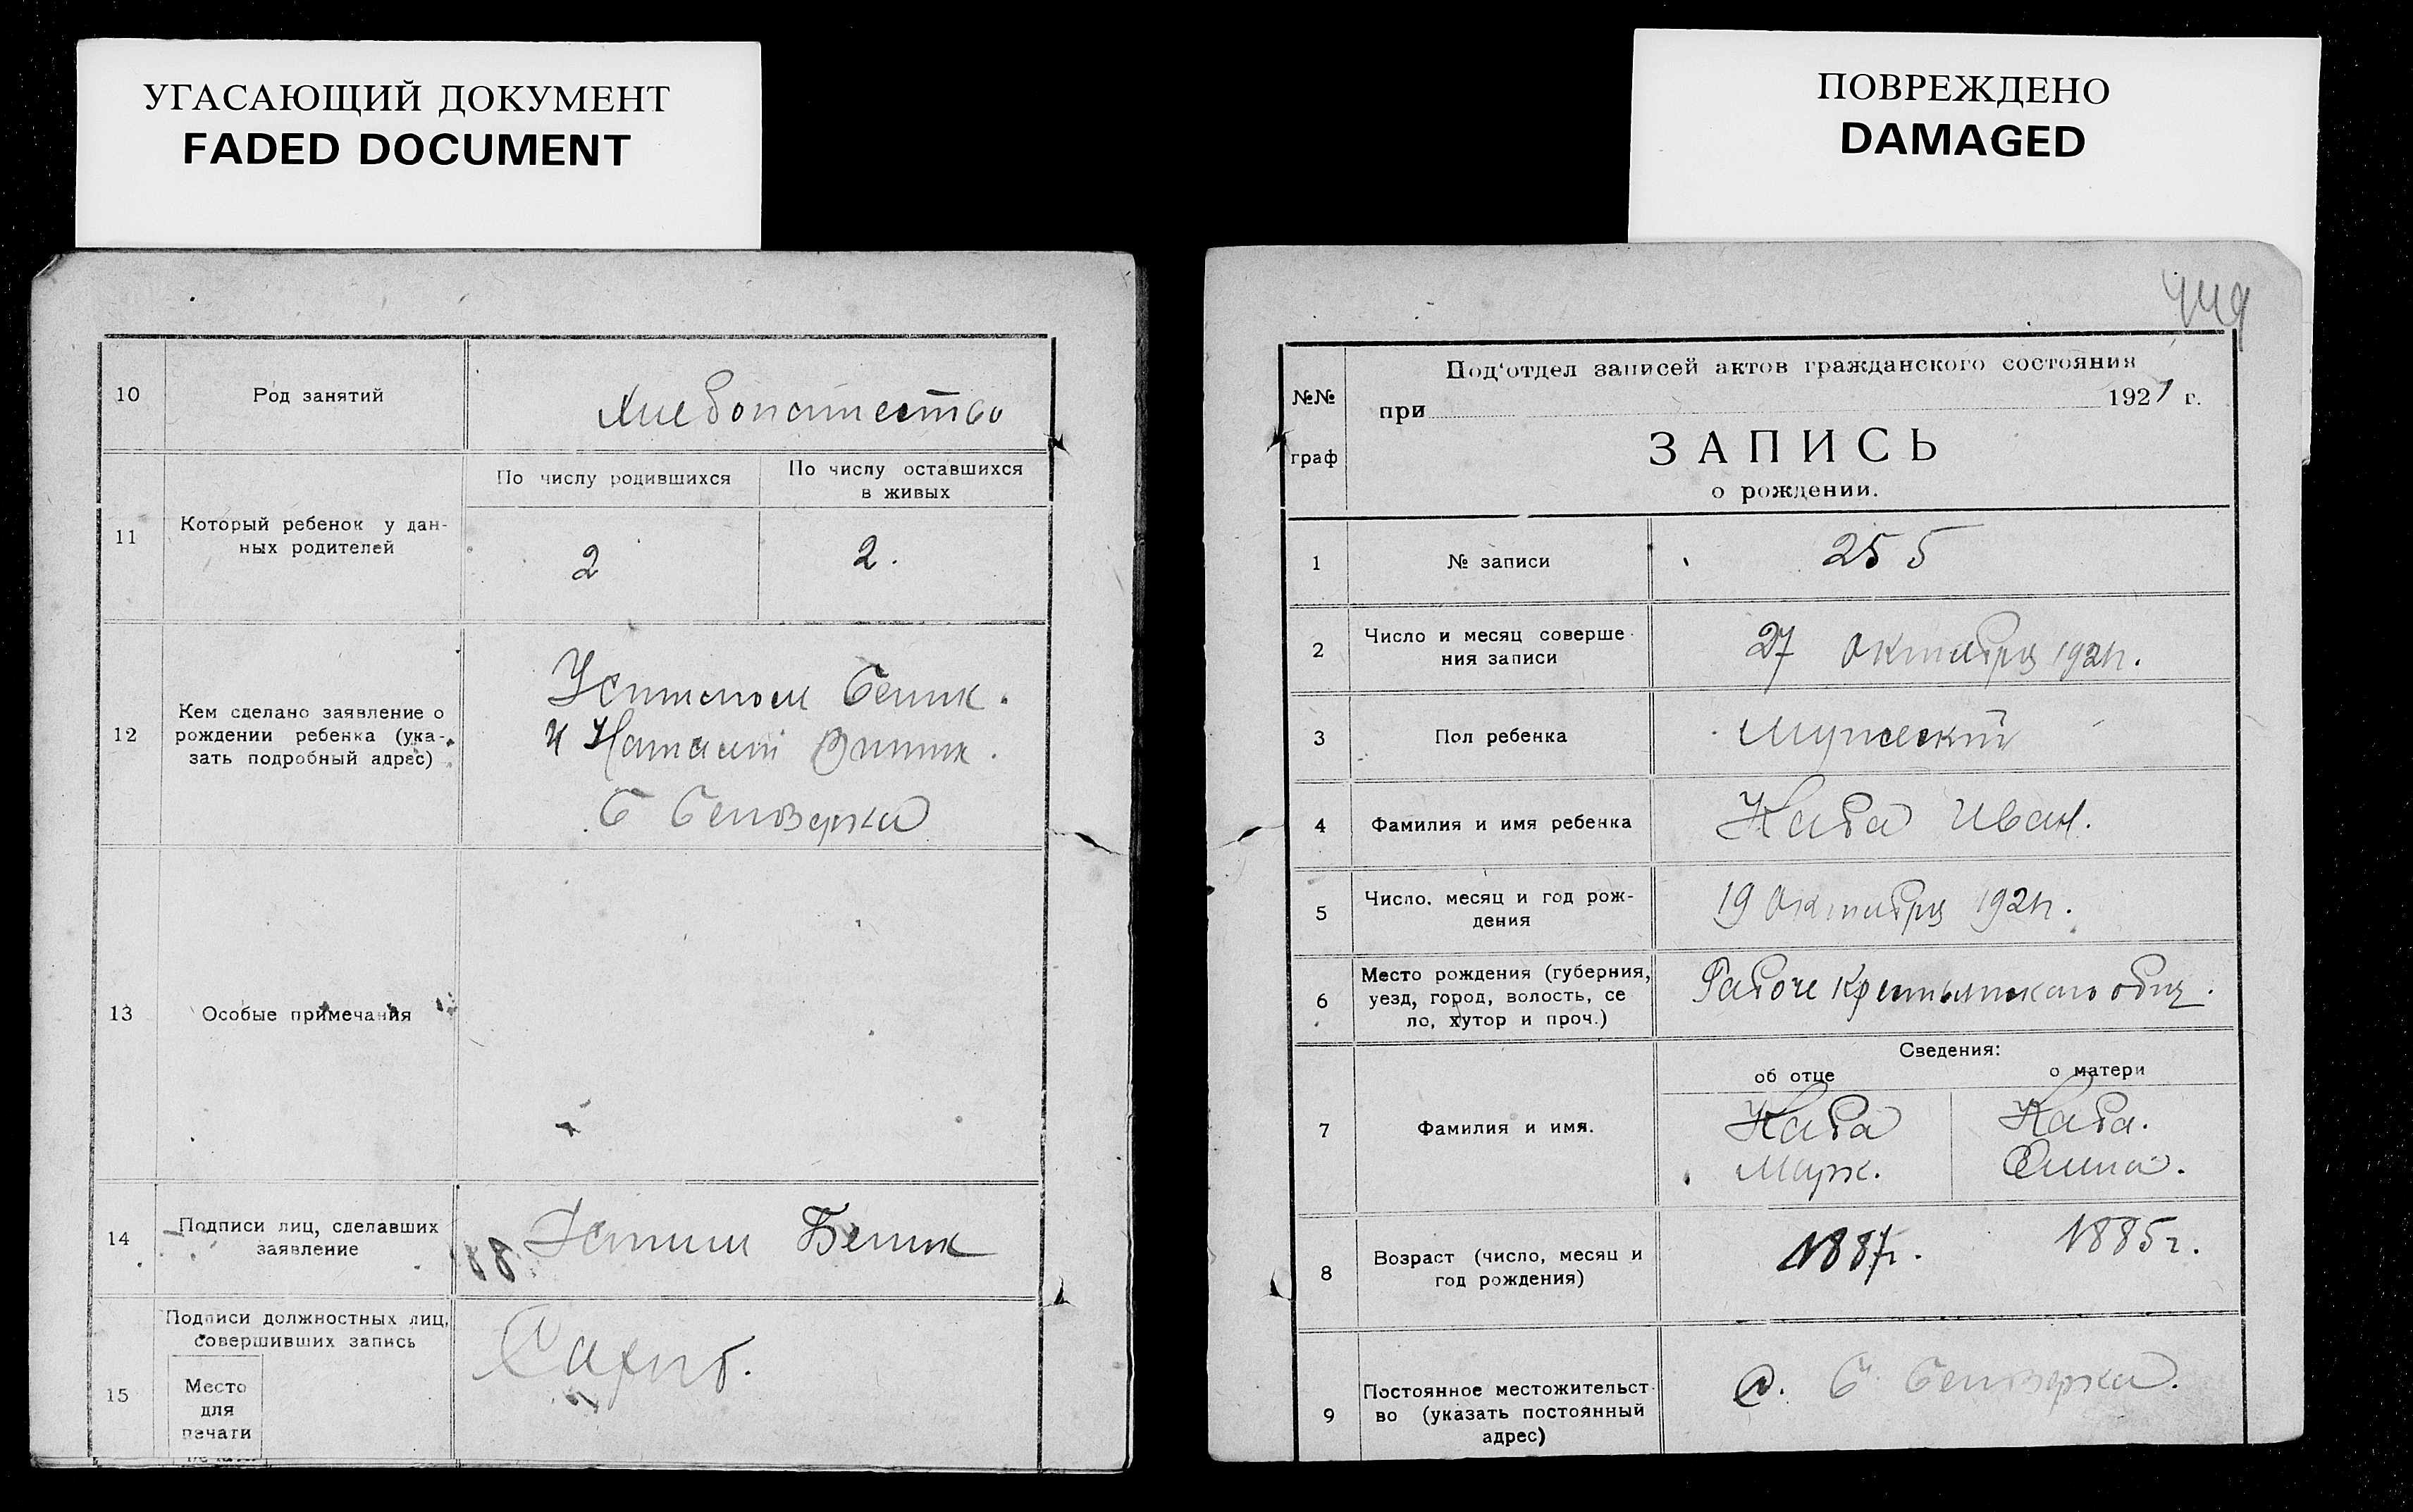 УГАСАЮЩИЙ ДОКУМЕНТ
FADED DOCUMENT
10
Род занятий
Хлебопашество
11
Который ребенок у дан-
ных родителей
По числу родившихся
По числу оставшихся
в живых
2
2.
12
Кем сделано заявление о
рождении ребенка (ука-
зать подробный адрес)
Белик.
и
13
Особые примечания
14
Подписи лиц, сделавших
заявление
Белик
15
Подписи должностных лиц,
совершивших запись
Место
для
печати
ПОВРЕЖДЕНО
DAMAGED
449
№№
граф
Под'отдел записей актов гражданского состояния
при 1921 г.
ЗАПИСЬ
о рождении.
1
№ записи
255
2
Число и месяц соверше-
ния записи
27 октября 1921г.
3
Пол ребенка
Мужский
4
Фамилия и имя ребенка
Каба Иван.
5
Число, месяц и год рож-
дения
19 октября 1921г.
6
Место рождения (губерния,
уезд, город, волость, се
ло, хутор и проч.)
Рабоче крестьянского общ.
Сведения:
об отце
о матери
7
Фамилия и имя.
Каба
Марк.
Каба.
8
Возраст (число, месяц и
год рождения)
1887г.
1885г.
9
Постоянное местожительст-
во (указать постоянный
адрес)